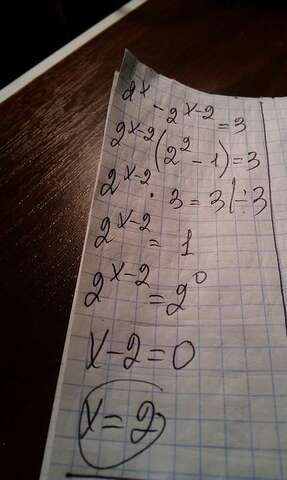 2^x - 2^{x-2} = 3
2^{x-2}(2^2 - 1) = 3
2^{x-2} · 3 = 3 | ÷3
2^{x-2} = 1
2^{x-2} = 2^0
x - 2 = 0
x = 2